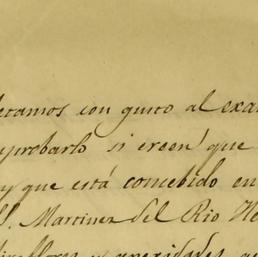 etamos con gusto al exa
aprobarlo si creen que
y que está concebido en
S. Martinez del Rio He